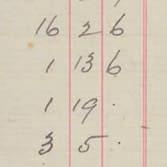 16 2 6
1 13 6
1 19 .
3 5 .